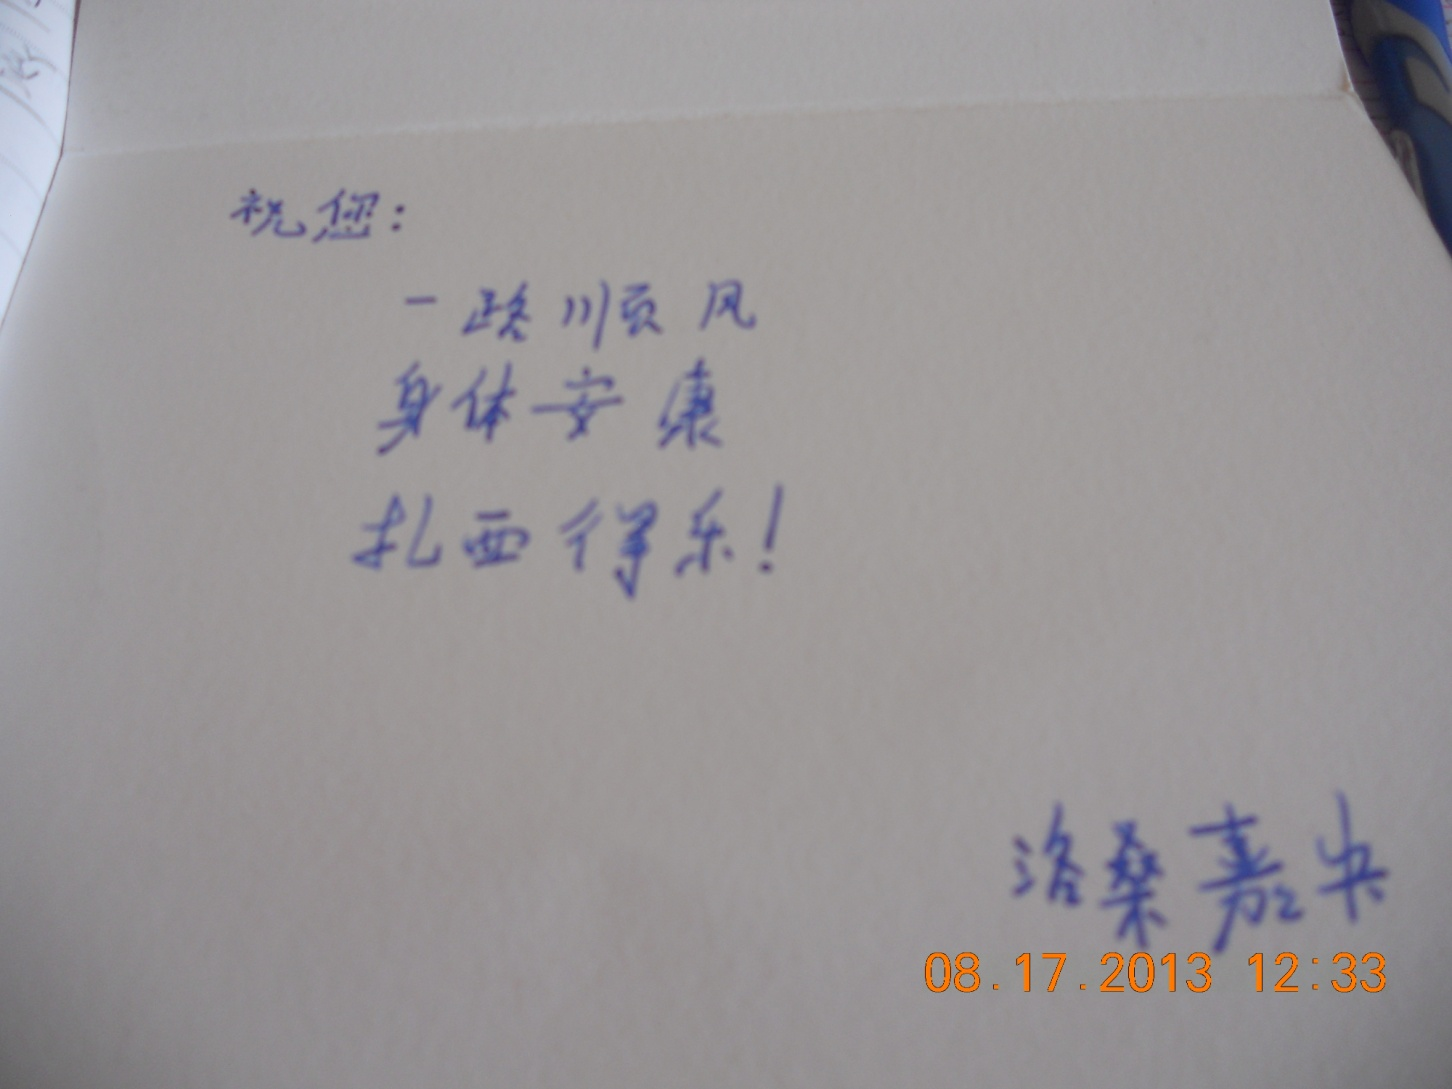 祝您:
一路顺风
身体安康
扎西得乐!
洛桑嘉央
08.17.2013 12:33